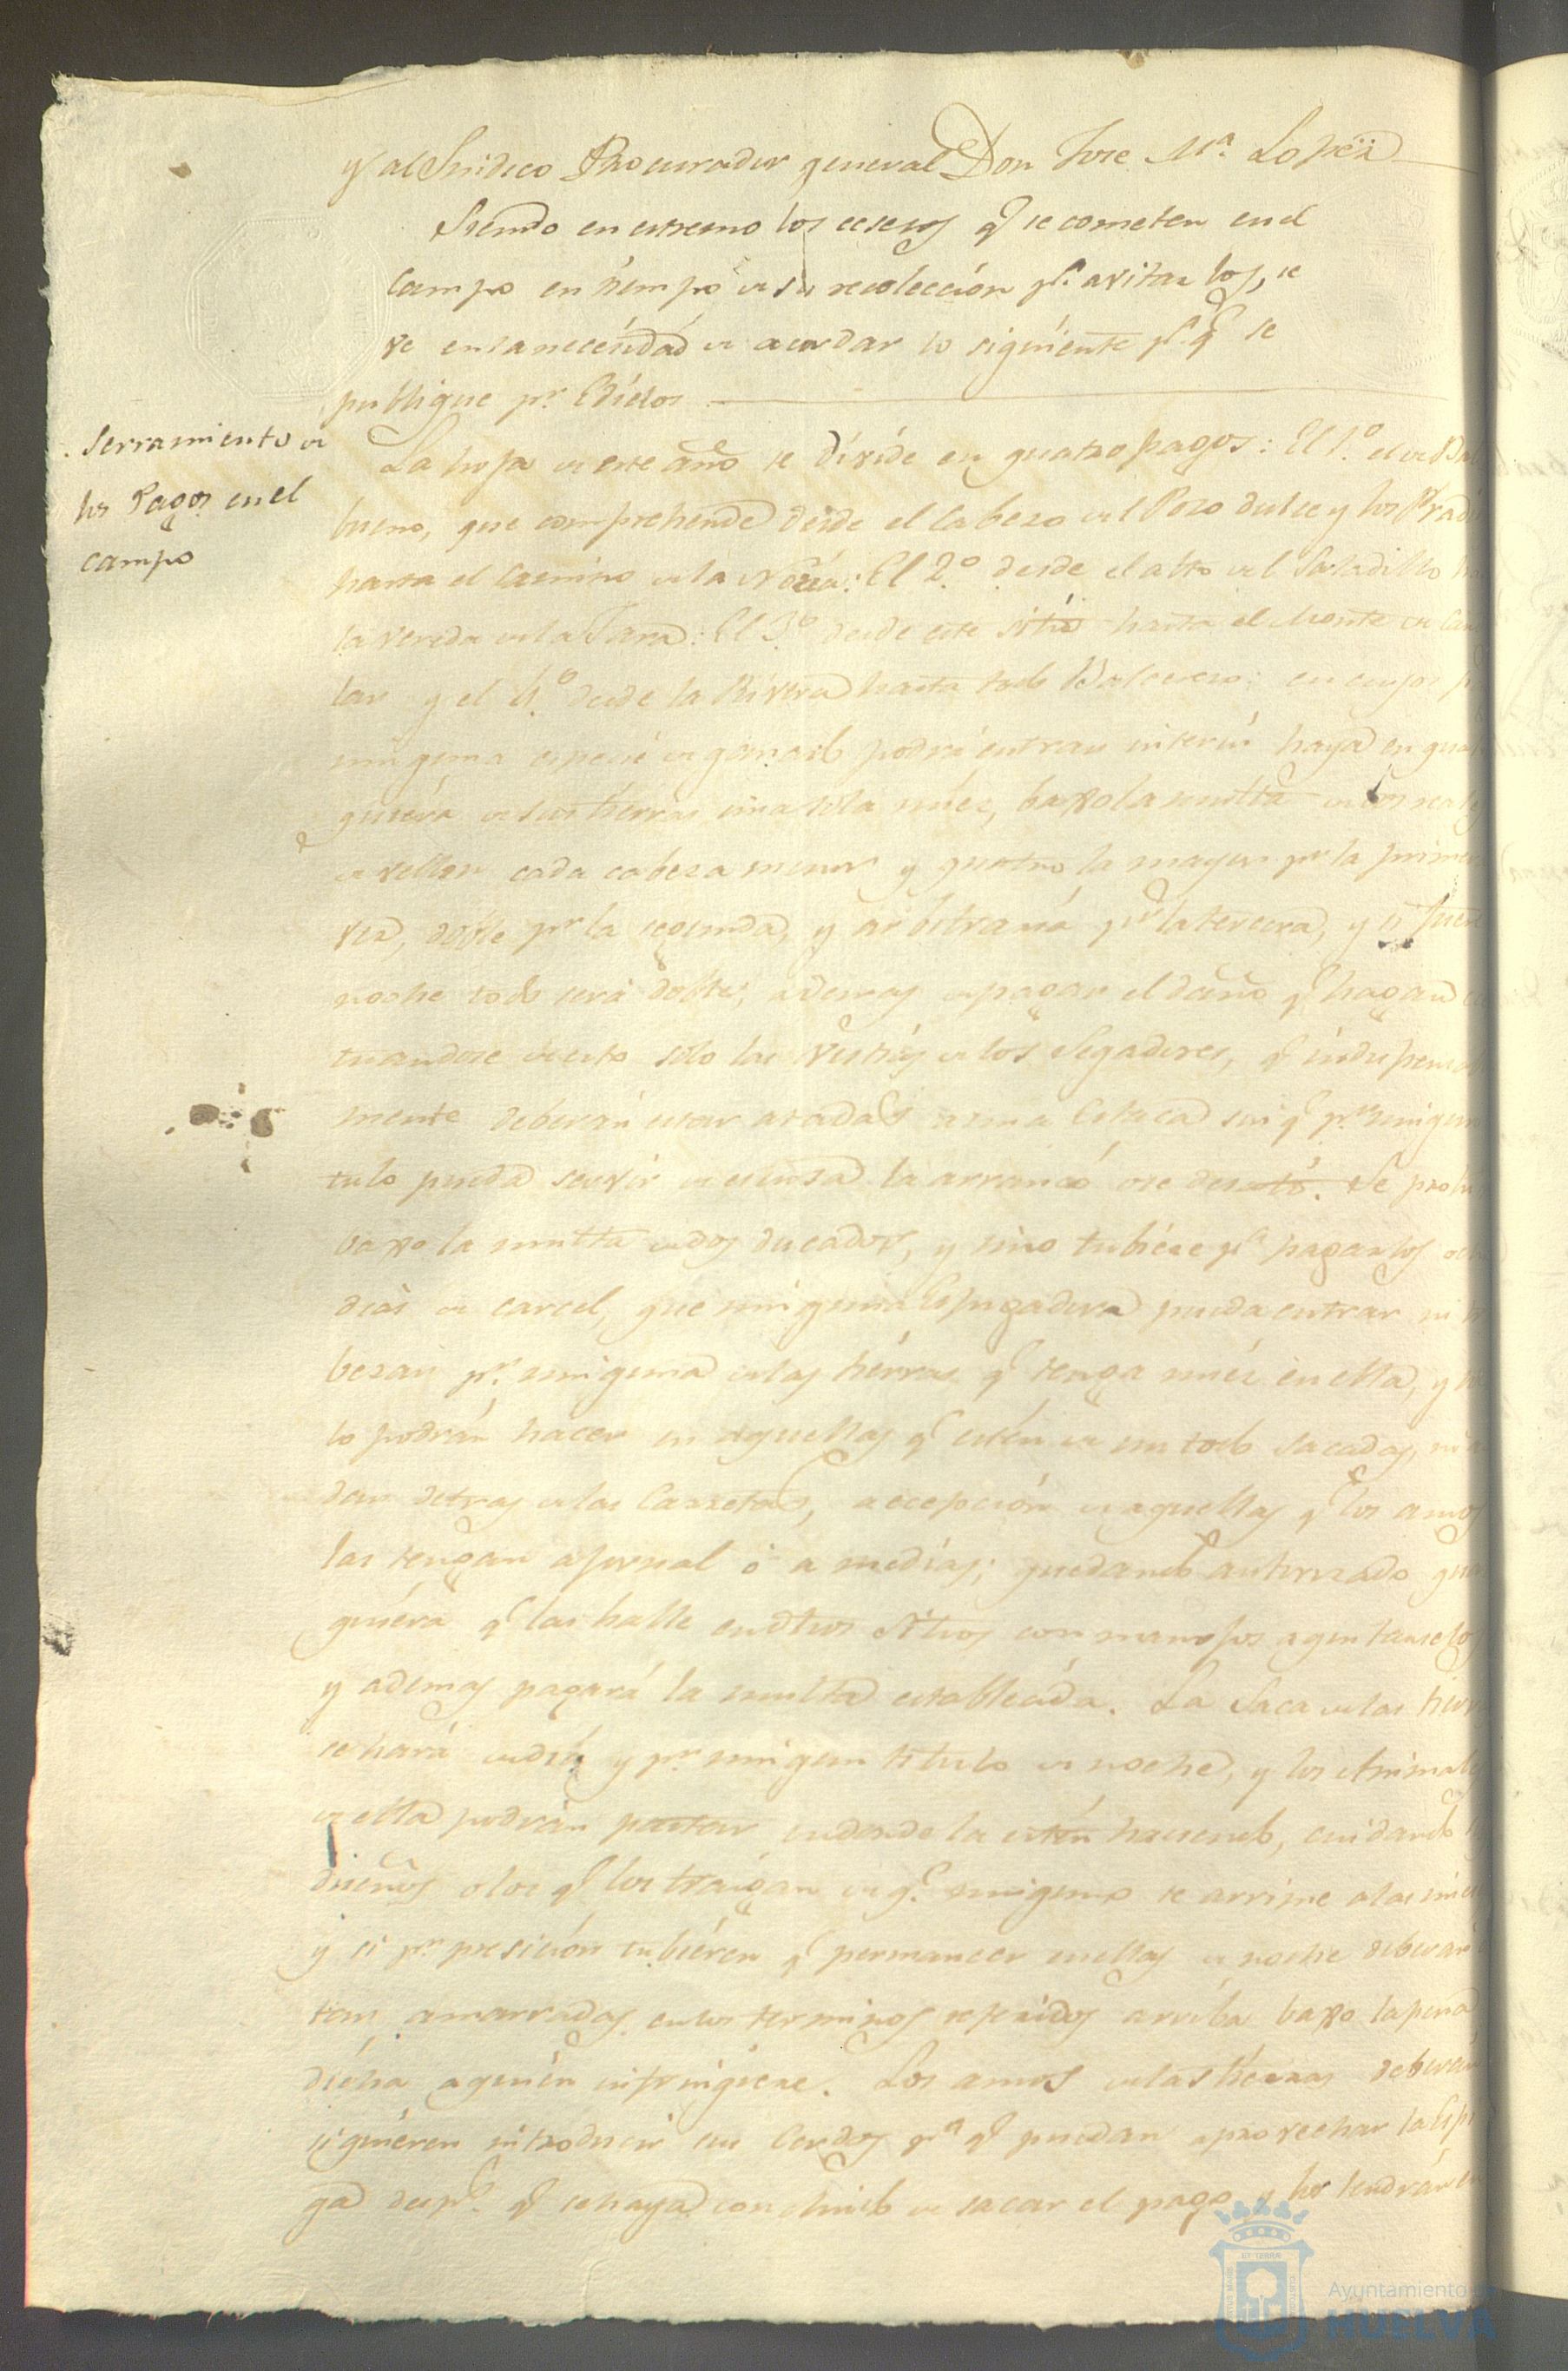 y al Sindico Procurador general Don Jose Mª. Lopez
Siendo en estremo los ecsesos q.e se cometen en el
Campo en tiempo de su recolección p.a avitar los, se
ve en la necesidad de acordar lo siguiente p.a q.e se
publique p.r Edictos
Serramiento de
los Pagos en el
campo
La hoja de este año se divide en quatro pagos: El 1.º el de
bueno, que comprehende desde el Cabezo del Pozo dulce y los
hasta el Camino de la Noria: El 2.º desde el alto del Saladillo
la vereda de la Jara: El 3.º desde este sitio hasta el Monte de
lar y el 4.º desde la Rivera hasta todo cuyos
ninguna especie de ganado podrá entrar interin haya en qual
quiera de sus tierras una sola mies, baxo la multa de dos real
de vellon cada cabeza menor y quatro la mayor p.r la primer
vez, doble p.r la segunda, y arbitraria p.r la tercera, y si fuere
noche todo será doble, ademas de pagar el daño q.e hagan
tuandose de esto solo las vestias de los Segadores, q.e indispensa
mente deberán estar atadas a una Estaca sin q.e p.r ningun
tulo pueda servir de escusa la arrancó o se desató. Se prohi
baxo la multa de dos ducados, y sino tubiere p.a pagarlos
dias de carcel, que ninguna Espigadera pueda entrar ni
bezar p.r ninguna de las tierras q.e tenga mies en ella, y
lo podrán hacer en aquellas q.e estén de un todo sacadas,
dar detras de las Carretas, a ecepción de aquellas q.e los amos
las tengan a jornal ó a medias; quedando autorizado qual
quiera q.e las halle en otros sitios con manojos a quitarselos
y ademas pagará la multa establecida. La Saca de las
se hará de dia y p.r ningun titulo de noche, y los Animales
de ella podrán pastar en donde la estén haciendo, cuidando
dueños o los q.e los traigan de q.e ninguno se arrime a las mies
y si p.r presición tubieren q.e permanecer en ellas de noche deberán
tar amarrados en los terminos referidos arriba baxo la pena
dicha a quien infringiere. Los amos de las tierras deberán
si quieren introducir sus Cerdos p.a q.e puedan aprovechar la Espi
ga desp.s q.e se haya concluido de sacar el pago y los tendrán
Ayuntamiento
HUELVA